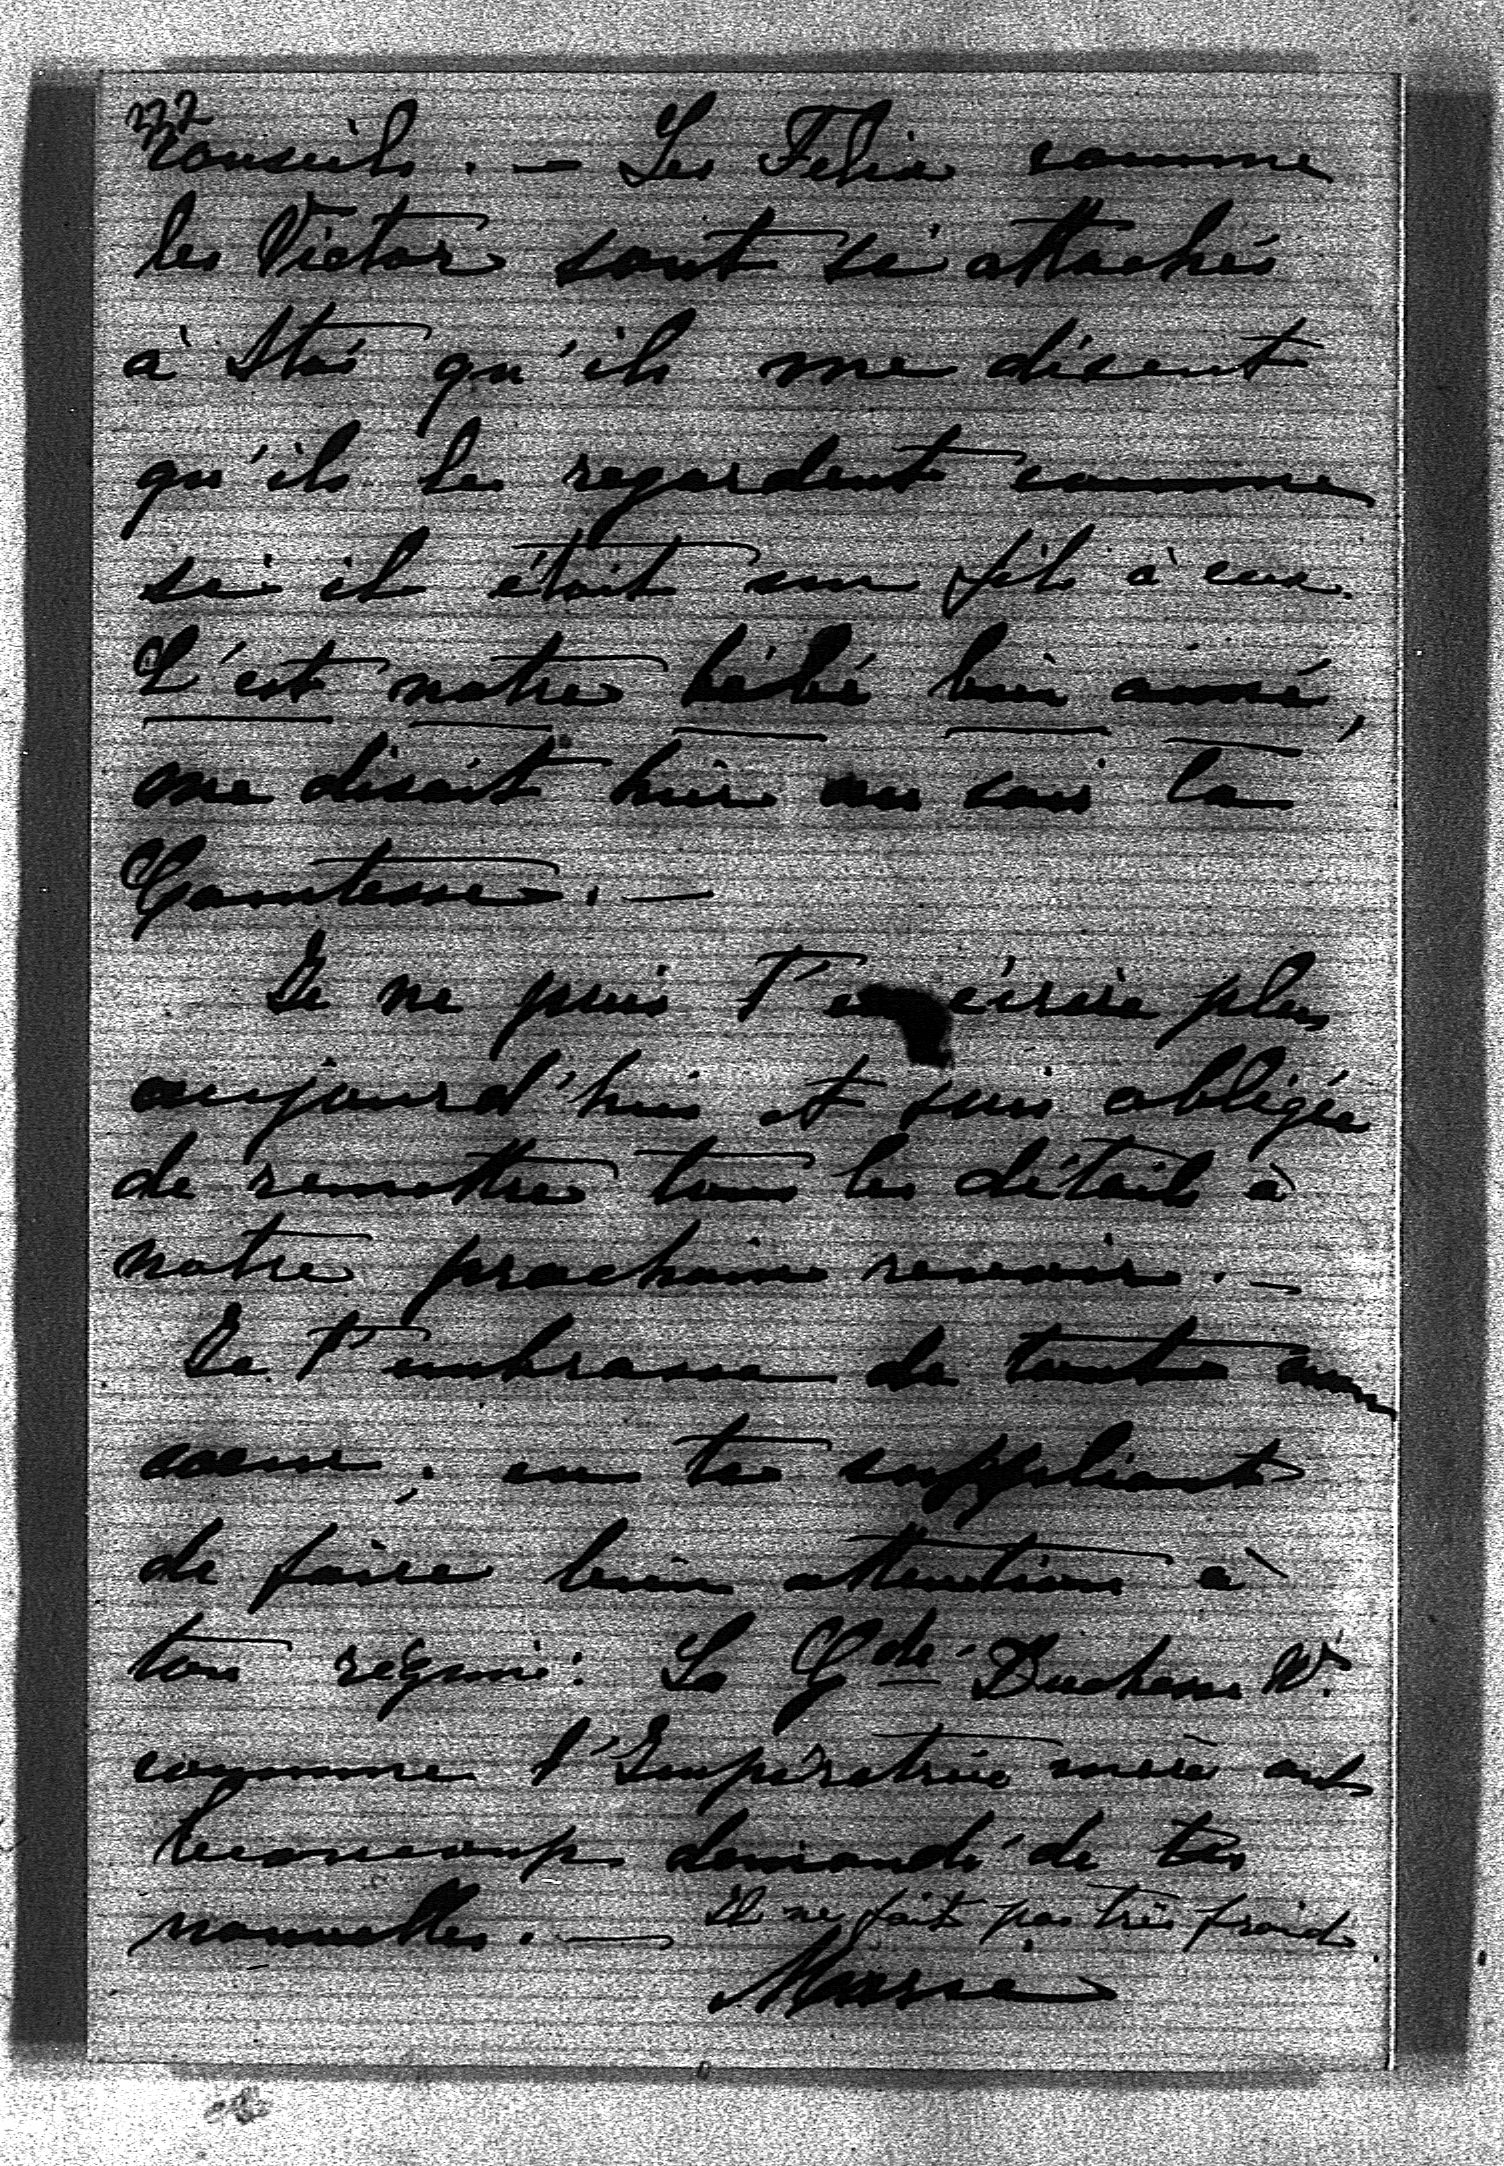 332
conseils. — Les Felix comme
les Victor sont si attachés
à Stas qu'ils me disent
qu'ils le regardent comme
si il était un fils à eux.
C'est notre bébé bien aimé,
me disait hier au soir la
Comtesse. —
Je ne puis t'en écrire plus
aujourd'hui et suis obligée
de remettre tous les détails à
notre prochain revoir. —
Je t'embrasse de tout mon
coeur, en te suppliant
de faire bien attention à
ton régime. La Gde Duchesse W.
comme l'Impératrice mère ont
beaucoup demandé de tes
nouvelles. —
Il ne fait pas très froid.